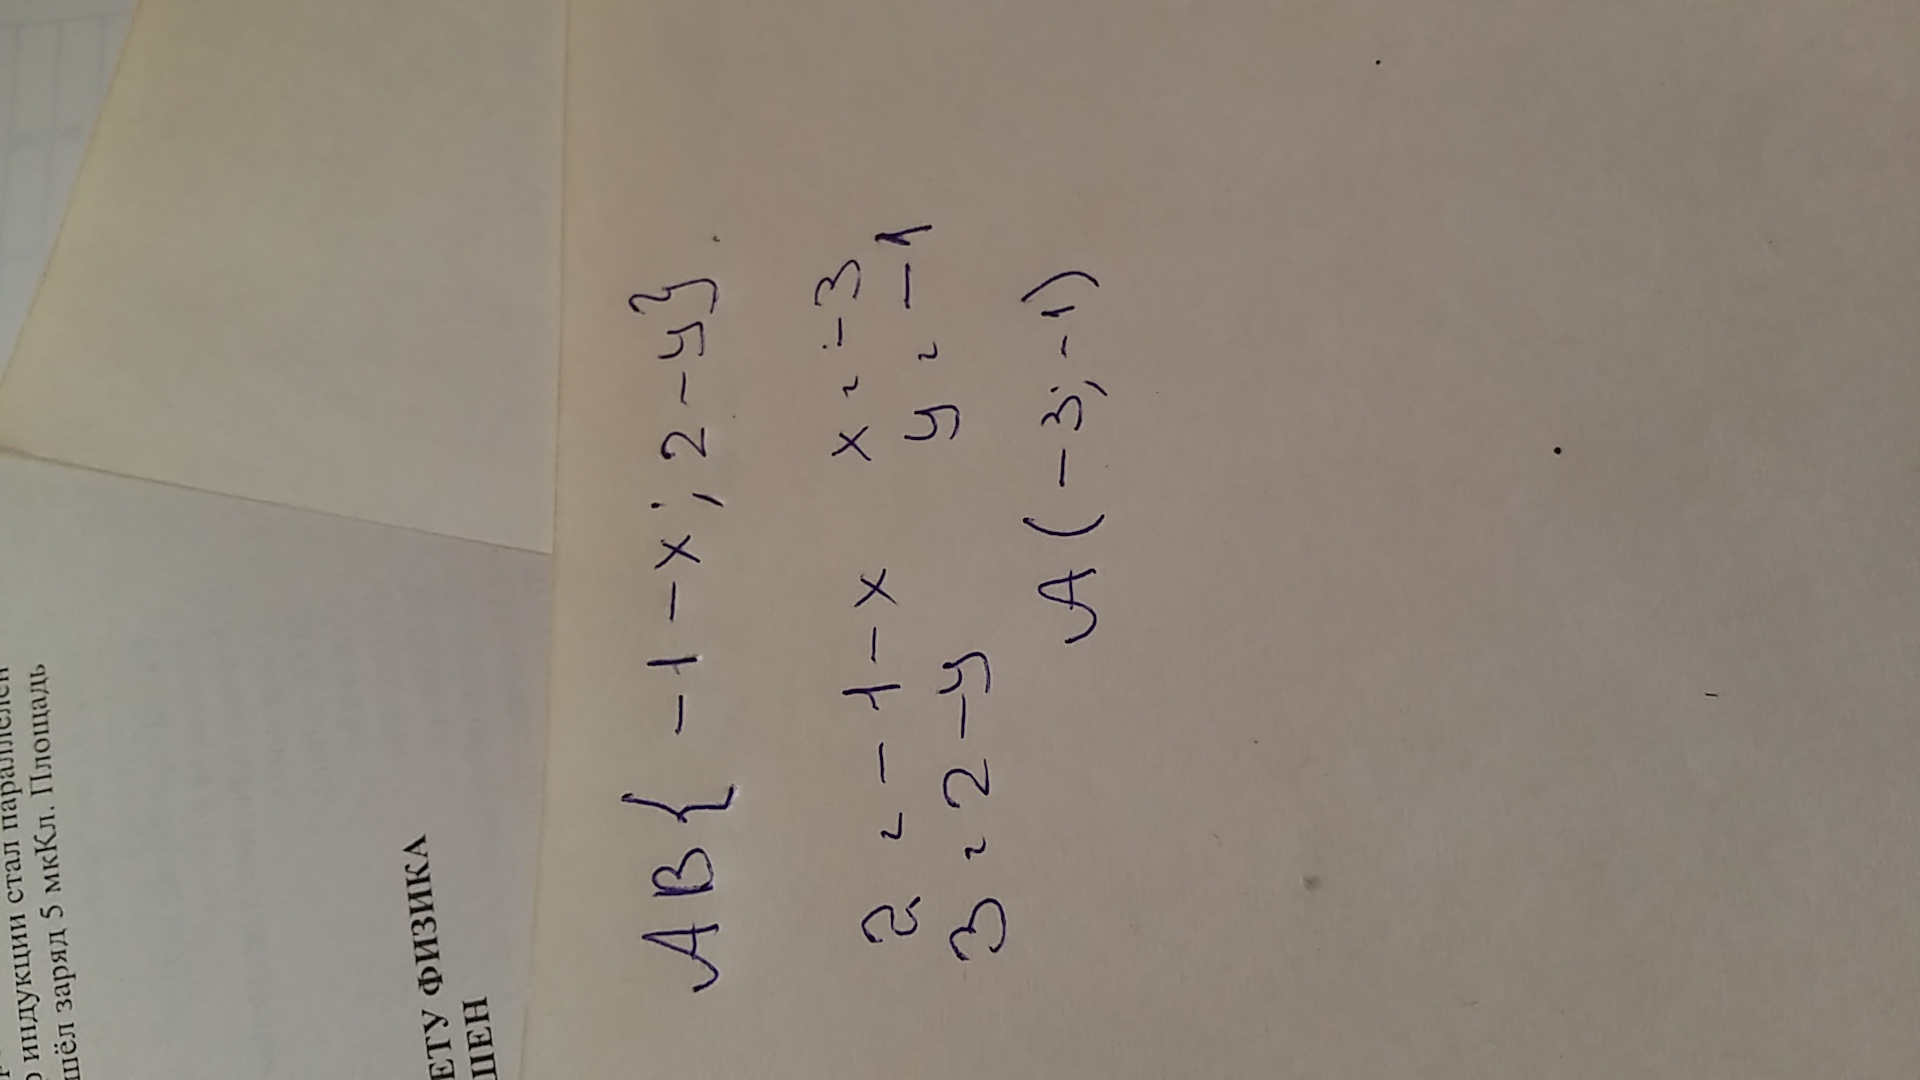 индукции стал параллелен
шёл заряд 5 мкКл. Площадь
ЕТУ ФИЗИКА
ШЕН
AB{-1-x; 2-y}
2 = -1-x x = -3
3 = 2-y y = -1
A(-3; -1)